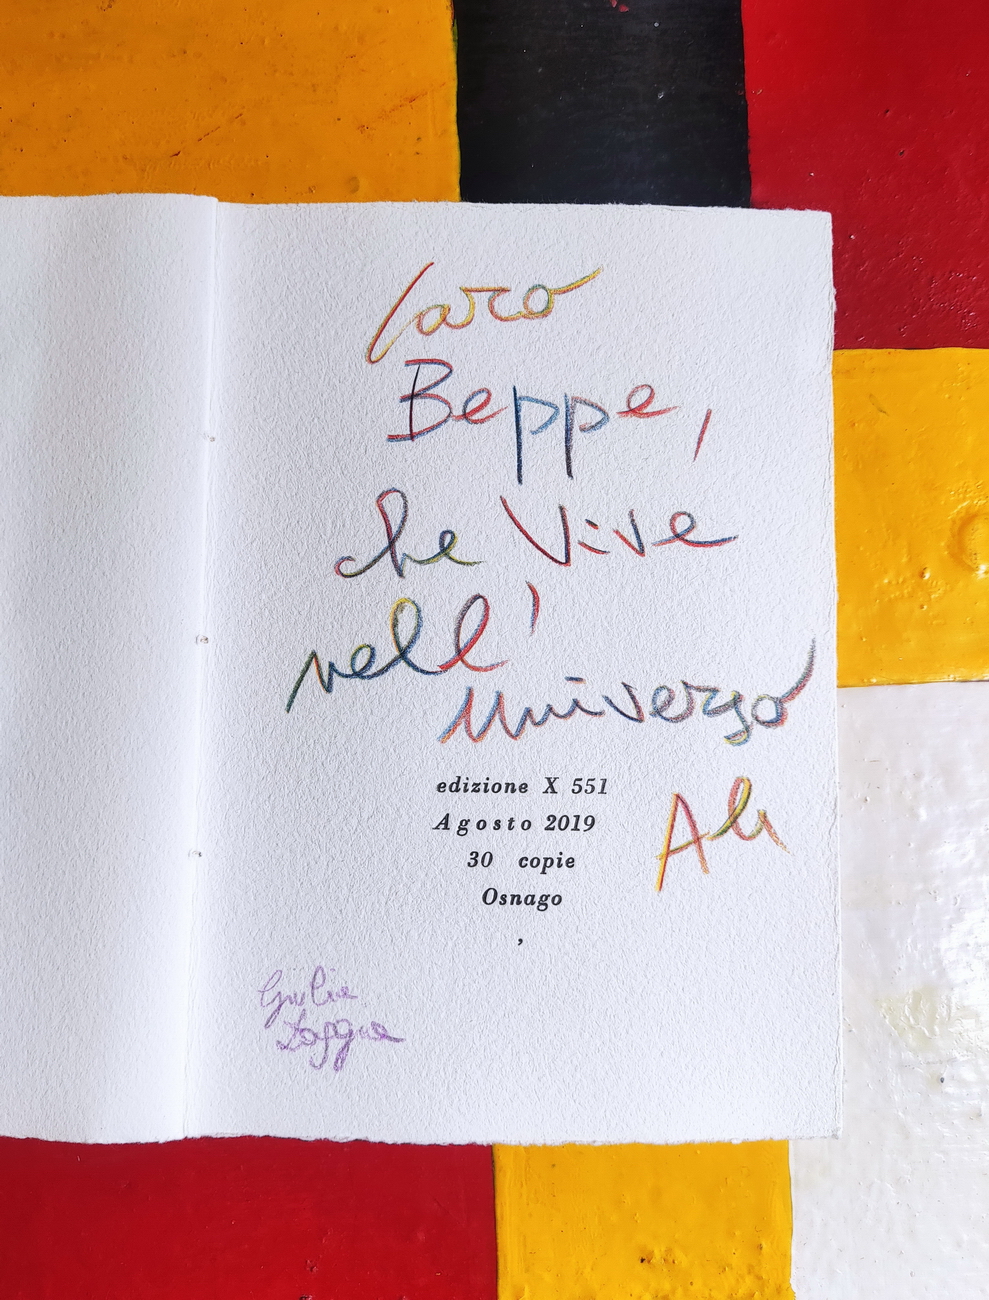 Caro
Beppe,
che Vive
nell'
Universo
edizione X 551
Agosto 2019
30 copie
Osnago
,
Giulia